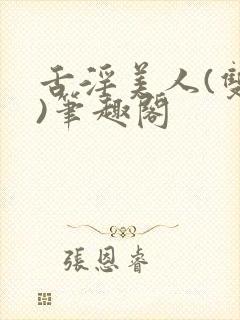 舌淫美人(雙
)筆趣閣
張恩睿